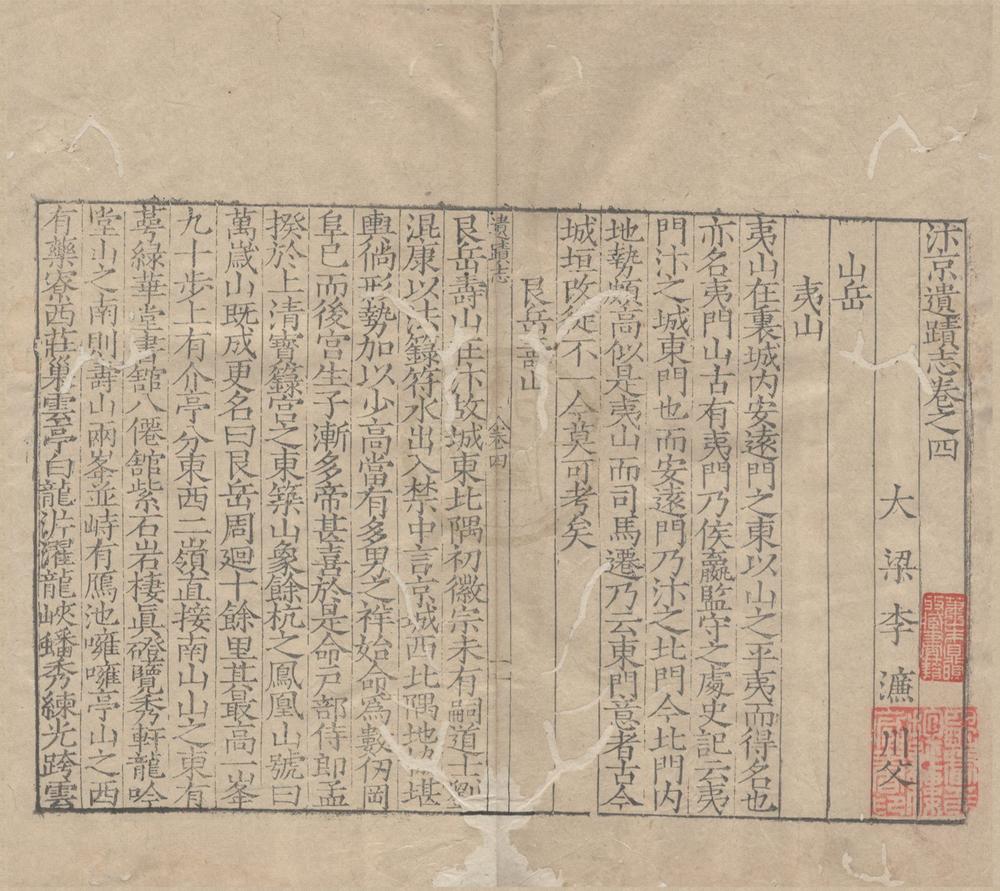 汴京遺蹟志卷之四
大梁李濂川父
山岳
夷山
夷山在裏城内安遠門之東以山之平夷而得名也
亦名夷門山古有夷門乃侯嬴監守之處史記云夷
門汴之城東門也而安遠門乃汴之北門今北門内
地勢頗高似是夷山而司馬遷乃云東門意者古今
城垣改徙不一今莫可考矣
艮岳壽山
遺蹟志
卷四
一
艮岳壽山在汴故城東北隅初徽宗未有嗣道士劉
混康以法籙符水出入禁中言京城西北隅地協堪
輿倘形勢加以少高當有多男之祥始命爲數仞岡
阜已而後宫生子漸多帝甚喜於是命戸部侍郎孟
揆於上清寶籙宫之東築山象餘杭之鳳凰山號曰
萬歲山既成更名曰艮岳周廻十餘里其最高一峯
九十步上有介亭分東西二嶺直接南山山之東有
萼綠華堂書舘八僊舘紫石岩棲眞磴覽秀軒龍吟
堂山之南則壽山兩峯並峙有鴈池噰噰亭山之西
有藥寮西莊巢雲亭白龍沜濯龍峽蟠秀練光跨雲